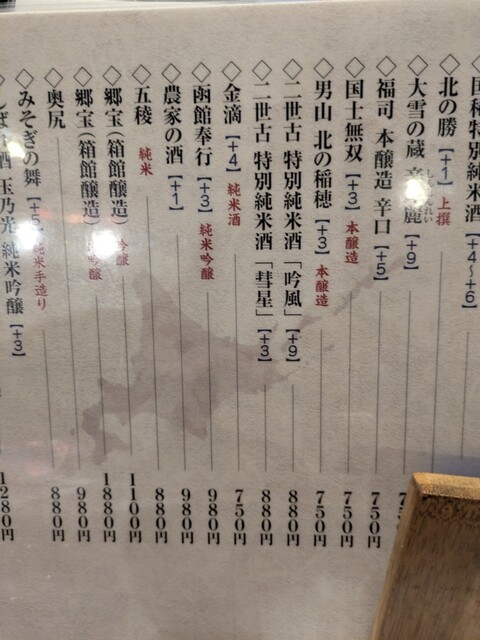 国稀 特別純米酒【+4〜+6】
◇北の勝【+1】上撰
◇大雪の蔵 麗【+9】
◇福司 本醸造 辛口【+5】 750円
◇国士無双【+3】本醸造 750円
◇男山 北の稲穂【+3】本醸造 750円
◇二世古 特別純米酒「吟風」【+9】 880円
◇二世古 特別純米酒「彗星」【+3】 880円
◇金滴【+4】純米酒 750円
◇函館奉行【+3】純米吟醸 980円
◇農家の酒【+1】 980円
◇五稜 純米 880円
◇郷宝(箱館醸造)吟醸 1100円
◇郷宝(箱館醸造)吟醸 1880円
◇奥尻 980円
◇みそぎの舞【+5】純米手造り 880円
酒 玉乃光 純米吟醸【+3】
1280円